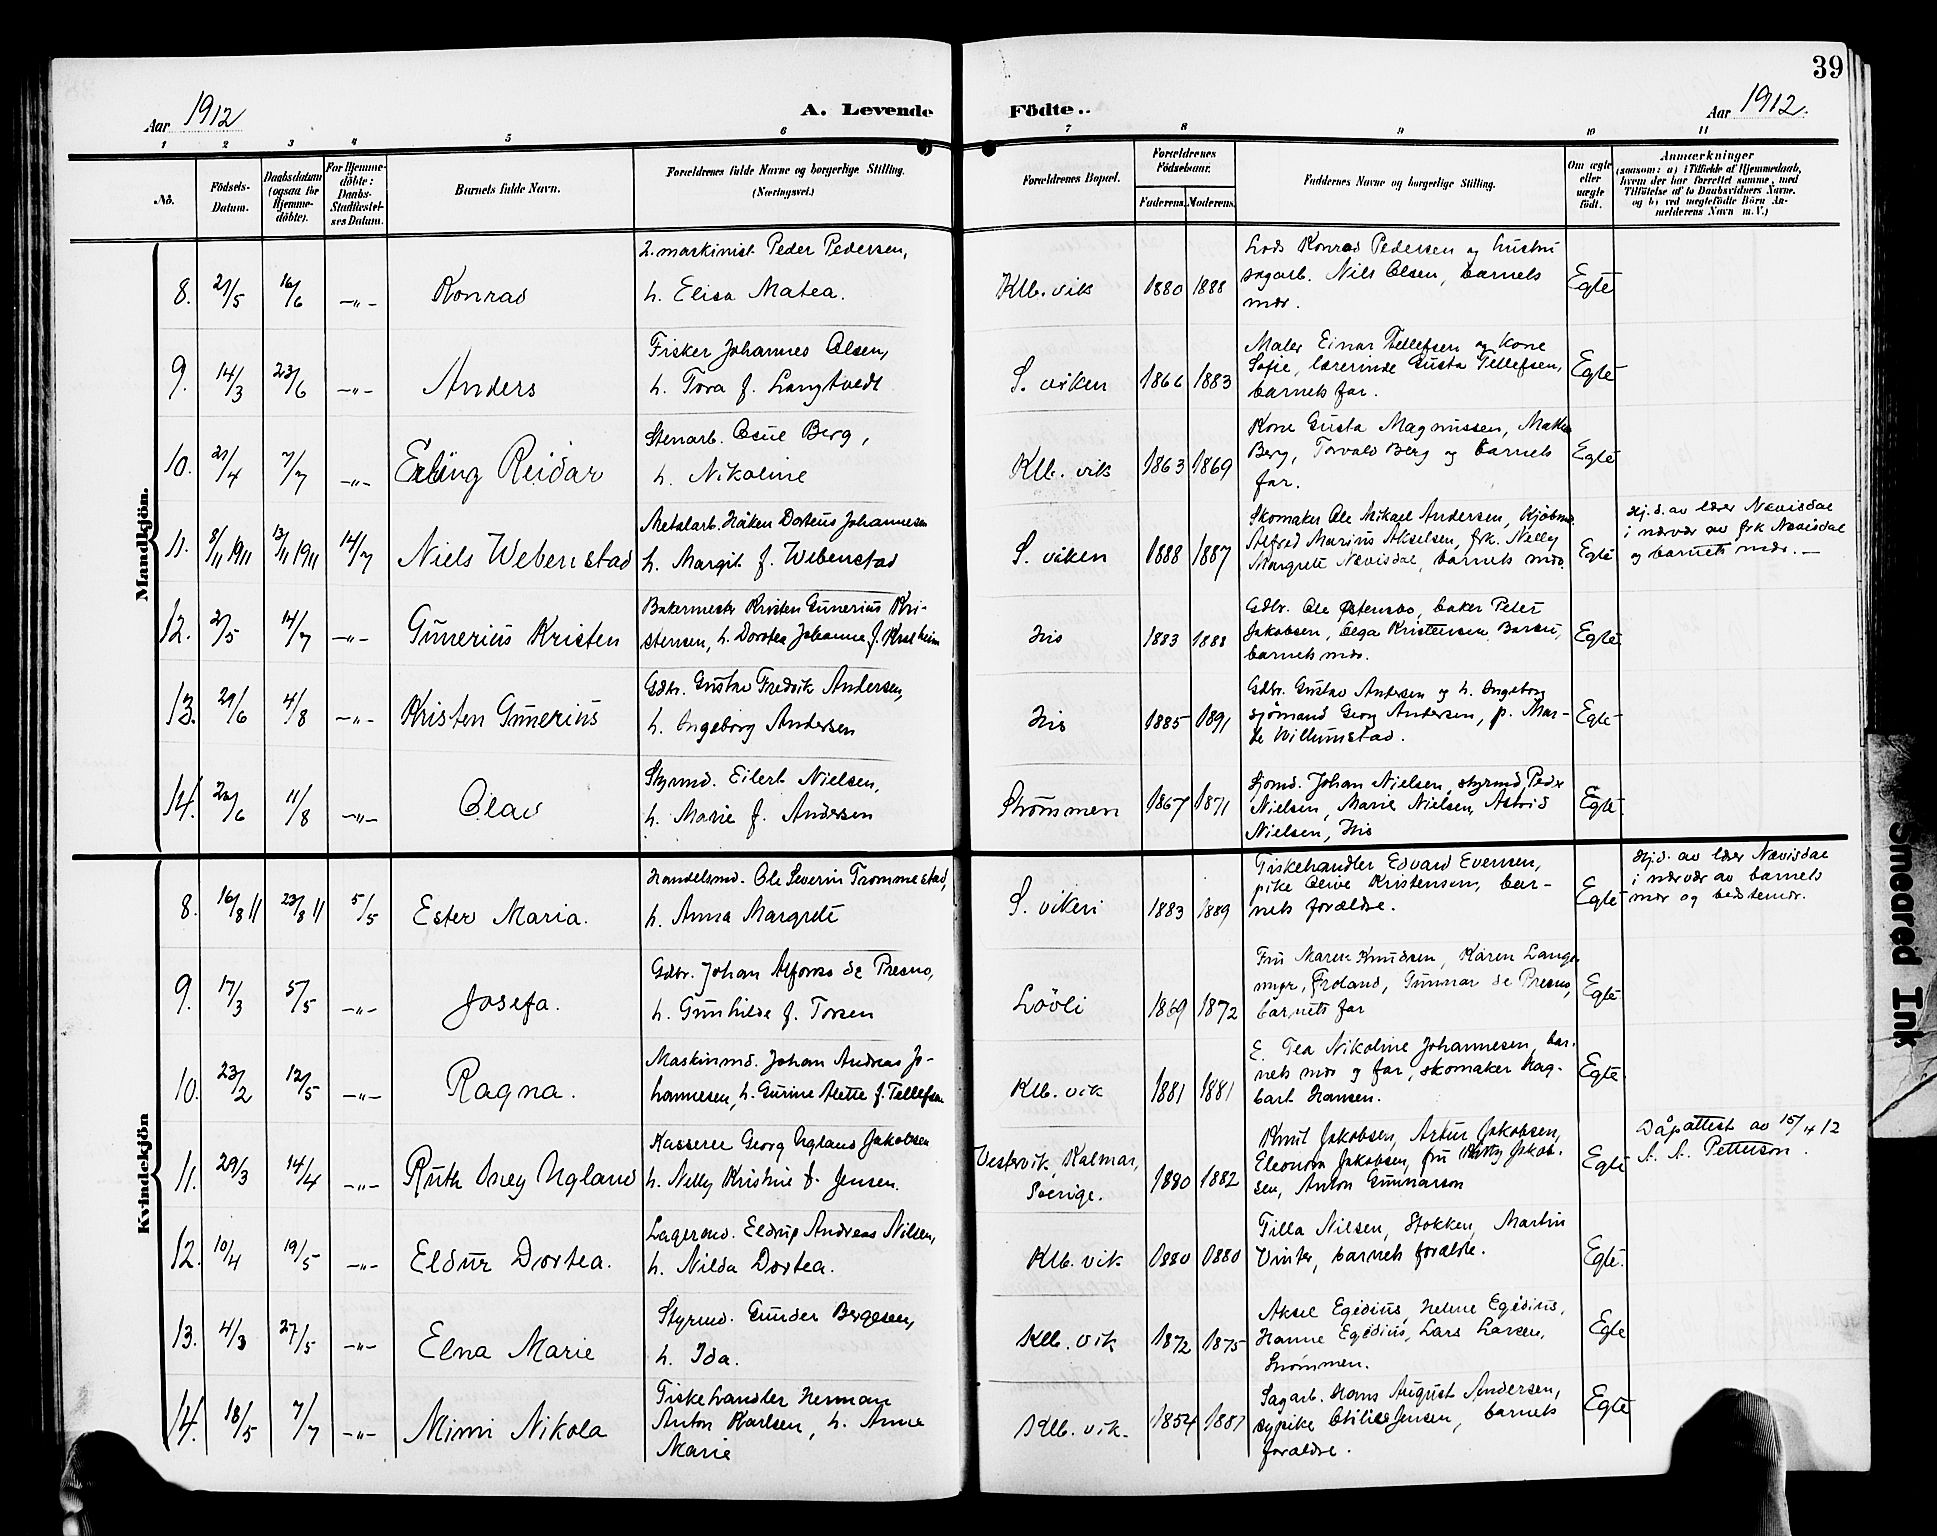 39
Aar 1912
A. Levende
Födte..
Aar 1912.
1 2 3 4 5 6 7 8 9 10 11
No.
Födsels-Datum.
Daabsdatum (ogsaa for Hjemme-döbte).
For Hjemme-döbte: Daabs-Stadfæstel-ses Datum.
Barnets fulde Navn.
Forældrenes fulde Navne og borgerlige Stilling.
(Næringsvei.)
Forældrenes Bopæl.
Forældrenes Födselsaar.
Faderens. Moderens.
Faddernes Navne og borgerlige Stilling.
Om ægte eller uægte födt.
Anmærkninger
(saasom: a) i Tilfælde af Hjemmedaab,
hvem der har forrettet samme, med
Tilföielse af to Daabsvidners Navne,
og b) ved uægtefödte Börn An-
melderens Navn m. V.)
Mandkjön.
8. 27/5 16/6 -"- Konrad
2. maskinist Peder Pedersen,
h. Elisa Matea.
Klb. vik 1880 1888
Lods Konrad Pedersen og hustru
sagarb. Nils Olsen, barnets
mor.
Egte
9. 14/3 23/6 -"- Anders
Fisker Johannes Olsen,
h. Tora f. Langtvedt
S. viken 1866 1883
Maler Einar Tellefsen og kone
Sofie, lærerinde Gusta Tellefsen,
barnets far.
Egte
10. 21/4 7/7 -"- Erling Reidar
Stenarb. Berg,
h. Nikoline
Klb. vik 1863 1869
Kone Gusta Magnussen,
Berg, Torvald Berg og barnets
far.
Egte
11. 8/11 1911 13/11 1911 14/7 Niels Webenstad
Metalarb. Håken Dorteus Johannesen
h. Margit f. Webenstad
S. viken 1888 1887
Skomaker Ole Mikael Andersen, Kjøbm.
Alfred Marius Akselsen, frk. Nelly
Margrete Nævisdal, barnets mor.
Egte
Hj. d. av lærer Nævisdal
i nærvær av frk Nævisdal
og barnets mor. —
12. 2/5 14/7 -"- Gunerius Kristen
Bakermester Kristen Gunerius Kri-
stensen, h. Dorotea Johanne f.
His 1883 1888
Gdbr. Ole Østensbo, baker Peter
Jakobsen, Olga Kristensen, Barbu,
barnets mor.
Egte
13. 29/6 4/8 -"- Kristen Gunerius
Gdbr. Gustav Fredrik Andersen,
h. Ingeborg Andersen
His 1885 1891
Gdbr. Gustav Andersen og h. Ingeborg
sjømand Georg Andersen, p. Mar-
Willumstad.
Egte
14. 6 11/8 -"- Olav
Styrmd. Eilert Nielsen,
h. Marie f. Andersen
Strømmen 1867 1871
Sjømd. Johan Nielsen, styrmd. Peder
Nielsen, Marie Nielsen, Astrid
Nielsen, His
Egte
Kvindekjön
8. 16/8 11 23/8 11 5/5 Ester Maria.
Handelsmd. Ole Severin Trommestad,
h. Anna Margrete
S. viken 1883 1889
Fiskehandler Edvard Evensen,
pike Olive Kristensen, bar-
nets forældre.
Egte
Hj. d. av lærer Nævisdal
i nærvær av barnets
mor og bedstemor.
9. 17/3 5/5 -"- Josefa.
Gdbr. Johan Alfonso de Presno,
h. Gunhilde f. Torsen
Lööli 1869 1872
Fru Maren Knudsen, Karen Lange-
myr, Froland, Gunnar de Presno,
barnets far
Egte
10. 23/2 12/5 -"- Ragna.
Maskinmd. Johan Andreas Jo-
hannesen, h. Gurine Alette f. Tellefsen
Klb. vik 1881 1881
E. Tea Nikoline Johannesen, bar-
nets mor og far, skomaker Hag-
bart Hansen.
Egte.
11. 29/3 14/4 -"- Ruth Ugland
Kasserer Georg Ugland Jakobsen
h. Nelly Kristine f. Jensen.
Vestervik, Kalmar,
Sverige. 1880 1882
Knut Jakobsen, Artur Jakobsen,
Eleonora Jakobsen, fru Kitty Jakob-
sen, Anton Gunnarson
Egte
Dåpattest av 15/4 12
A. A. Petterson.
12. 10/4 19/5 -"- Eldur Dortea.
Lagermd. Eldrup Andreas Nilsen,
h. Nilda Dortea.
Klb. vik 1880 1880
Tilla Nilsen, Stokken, Martin
Vinter, barnets forældre.
Egte.
13. 4/3 27/5 -"- Elna Marie
Styrmd. Gunder Bergesen,
h. Ida.
Klb. vik 1872 1875
Aksel Egidius, Helene Egidius,
Hanne Egidius, Lars Larsen,
Strømmen.
Egte
14. 18/5 7/7 -"- Mimi Nikola
Fiskehandler Herman
Anton Karlsen, h. Anne
Marie
Klb. vik. 1854 1881
Sagarb. Hans August Andersen,
sypike Otilie Jensen, barnets
forældre.
Egte
Smeared Ink